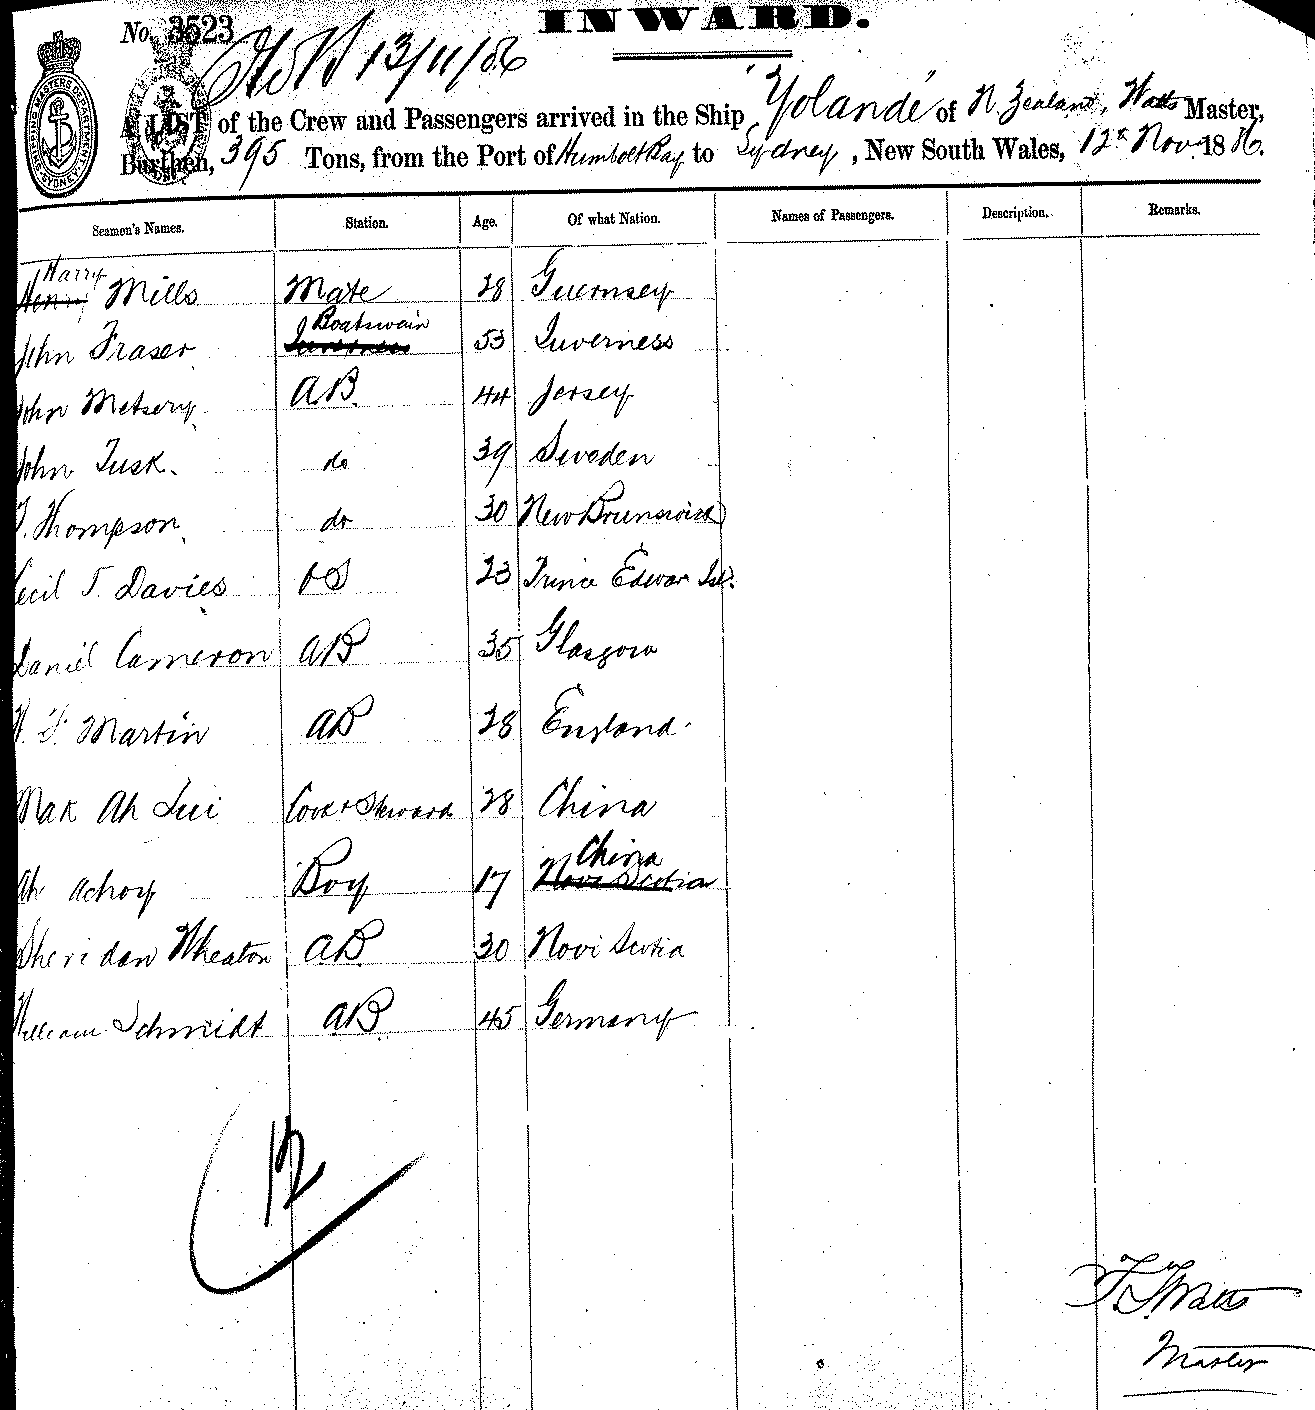 INWARD.
No. 3523
13/11/86
SHIPPING MASTERS DEPARTMENT SYDNEY
A LIST of the Crew and Passengers arrived in the Ship "Yolande" of N Zealand, Watts Master,
Burthen, 395 Tons, from the Port of Humbolt Bay to Sydney, New South Wales, 12th Nov. 1886.
Seamen's Names. Station. Age. Of what Nation. Names of Passengers. Description. Remarks.
Harry
Henri Mills Mate 28 Guernsey
Boatswain
John Fraser Inverness 53 Inverness
John Metsery AB. 44 Jersey
John Tusk. do 39 Sweden
T. Thompson do 30 New Brunswick
Cecil T. Davies OS 23 Prince Edwar Isl.
Daniel Cameron AB 35 Glasgow
W. F. Martin AB 28 England
Mak Ah Sui Cook & Steward 28 China
China
Ah Achoy Boy 17 Nova Scotia
Sheridan Wheaton AB 30 Novi Scotia
William Schmidt AB. 45 Germany
12
F. J. Watts
Master